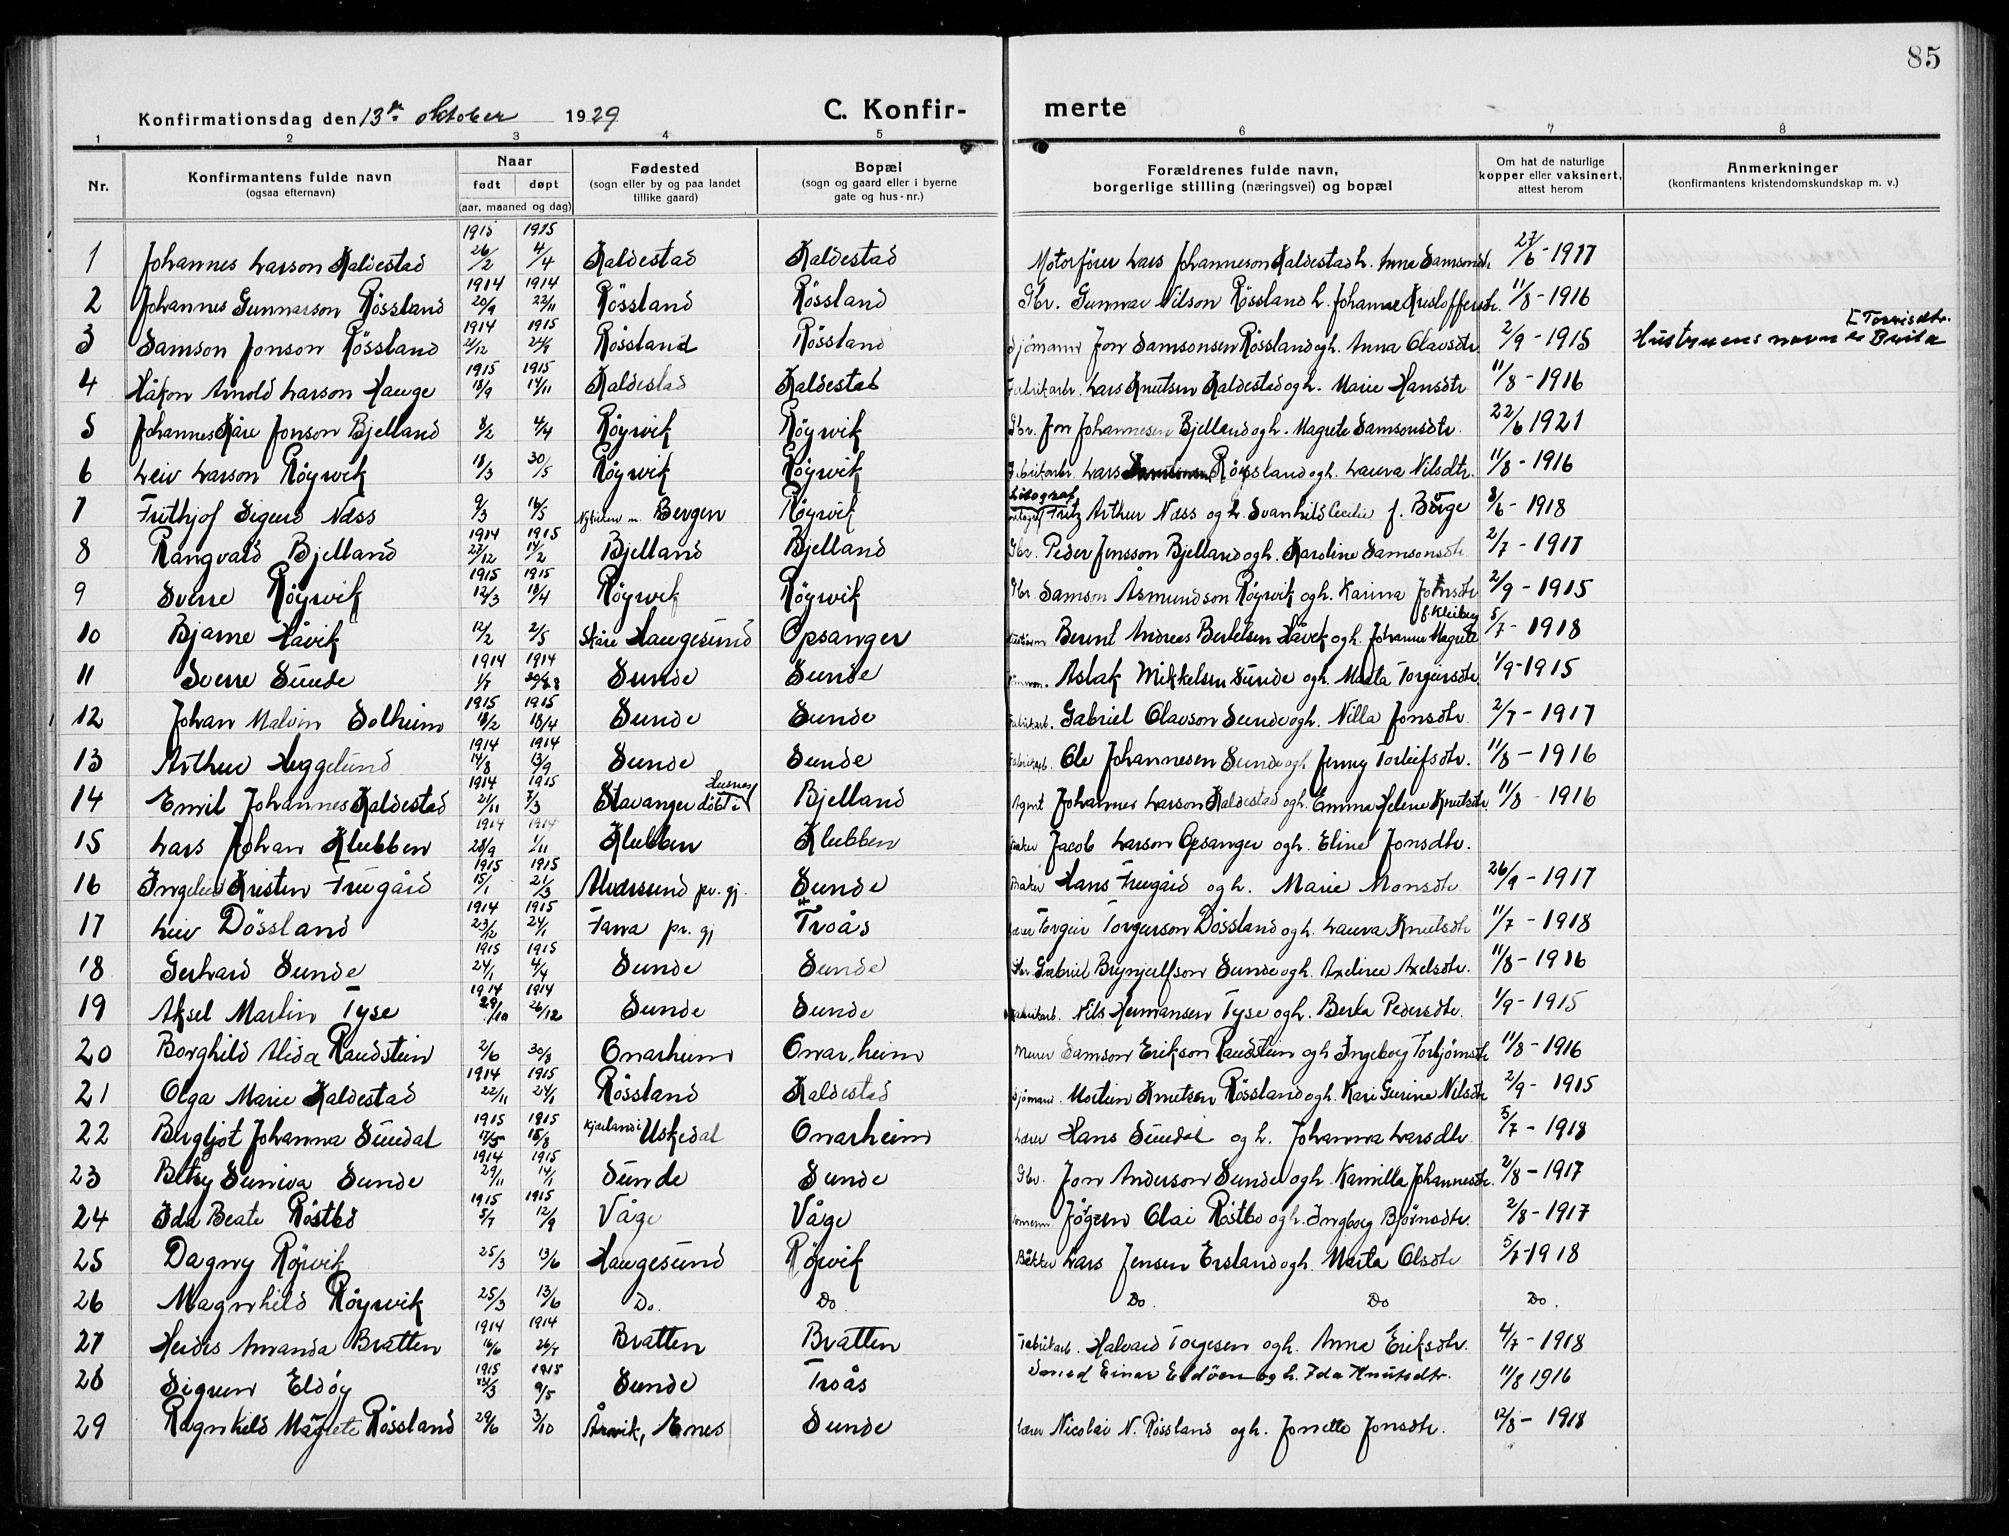 85
Konfirmationsdag den 13de oktober 1929 C. Konfir- merte
1 2 3 4 5 6 7 8
Nr. Konfirmantens fulde navn (ogsaa efternavn) Naar født døpt (aar, maaned og dag) Fødested (sogn eller by og paa landet tillike gaard) Bopæl (sogn og gaard eller i byerne gate og hus-nr.) Forældrenes fulde navn, borgerlige stilling (næringsvei) og bopæl Om hat de naturlige kopper eller vaksinert, attest herom Anmerkninger (konfirmantens kristendomskundskap m. v.)
1 Johannes Larson Kaldestad 1915 26/2 1915 4/4 Kaldestad Kaldestad Motorfører Lars Johanneson Kaldestad h. Anna Samsondtr 27/6 - 1917
2 Johannes Gunnarson Røssland 1914 20/9 1914 22/11 Røssland Røssland Gbr. Gunnar Nilson Røssland h. Johanne Kristoffersdtr. 11/8 - 1916
3 Samson Jonson Røssland 1914 21/12 1915 Røssland Røssland Sjømann Jon Samsonsen Røssland og h. Anna Olavsdtr. 2/9 - 1915 Hustruens navn er Brita Torrisdtr.
4 Håkon Arnold Larson Hauge 1915 18/9 1915 14/11 Kaldestad Kaldestad Fabrikarb. Lars Knutsen Kaldestad og h. Marie Hansdtr 11/8 - 1916
5 Johannes Kåre Jonson Bjelland 8/2 4/4 Røyrvik Røyrvik Gbr. Jon Johannesen Bjelland og h. Magrete Samsonsdtr. 22/6 1921
6 Leiv Larson Røyrvik 18/3 30/5 Røyrvik Røyrvik Fabrikarb. Lars Røssland og h. Laura Nilsdtr. 11/8 - 1916
7 Frithjof Sigurd Næss 9/3 16/5 Bergen Røyrvik Litograf Fritz Arthur Næss og h. Svanhild Cecilie f. Børge 8/6 - 1918
8 Rangvald Bjelland 1914 27/12 1915 14/2 Bjelland Bjelland Gbr. Peder Jensson Bjelland og h. Karoline Samsonsdtr 2/7 - 1917
9 Sverre Røyrvik 1915 12/3 1915 18/4 Røyrvik Røyrvik Gbr. Samson Åsmundson Røyrvik og h. Karina Johnsdtr 2/9 - 1915
10 Bjarne Håvik 12/2 2/5 Skåre Haugesund Opsanger Bernt Andreas Bertelsen Håvik og h. Johanne Magrete 5/7 - 1918
11 Sverre Sunde 1914 1/7 1914 Sunde Sunde Aslak Mikkelsen Sunde og h. Marta Torgeirsdtr. 1/9 - 1915
12 Johan Malvin Solheim 1915 18/2 1915 18/4 Sunde Sunde Fabrikarb. Gabriel Olavson Sunde og h. Nilla Jonsdtr. 2/7 - 1917
13 Arthur Heggelund 1914 14/8 1914 13/9 Sunde Sunde Fabrikarb. Ole Johannesen Sunde og h. Jenny Torleifsdtr. 11/8 - 1916
14 Emil Johannes Kaldestad 1914 21/11 1915 7/3 Stavanger døbt i Husnes Bjelland Agent Johannes Larson Kaldestad og h. Emma Helene Knutsdtr. 11/8 - 1916
15 Lars Johan Klubben 1914 28/9 1914 1/11 Klubben Klubben Jacob Larson Opsanger og h. Eline Jonsdtr.
16 Kristen Fuegård 1915 15/1 1915 21/3 Alversund pr. gj. Sunde Baker Hans Fuegård og h. Marie Monsdtr. 26/9 - 1917
17 Leiv Døssland 1914 23/12 1915 24/1 Fana pr. gj Troås Lærer Torgeir Torgerson Døssland og h. Laura Knutsdtr 11/7 - 1918
18 Gerhard Sunde 1915 24/1 1915 4/4 Sunde Sunde Gbr Gabriel Brynjulfson Sunde og h. Axeline Axelsdtr. 11/8 - 1916
19 Aksel Martin Tyse 1914 29/10 1914 26/12 Sunde Sunde Fabrikarb. Nils Hermansen Tyse og h. Berta Pedersdtr. 1/9 - 1915
20 Borghild Alida Raudstein 2/6 30/8 Onarheim Onarheim Murer Samson Erikson Raudstein og h Ingeborg Torbjørnsdtr 11/8 - 1916
21 Olga Marie Kaldestad 1914 22/11 1915 24/1 Røssland Kaldestad Sjømand Mortein Knutsen Røssland og h. Kari Gurine Nilsdtr 2/9 - 1915
22 Bergljot Johanna Sundal 1915 17/5 1915 15/8 Uskedal Onarheim Lærer Hans Sundal og h. Johanna Larsdtr. 5/7 - 1918
23 Betsy Suniva Sunde 1914 29/11 1915 14/1 Sunde Sunde Gbr. Jon Anderson Sunde og h. Kamilla Johannesdtr. 2/8 - 1917
24 Ida Beate Røstbø 1915 5/7 1915 12/9 Våge Våge Jørgen Olai Røstbø og h. Ingborg Bjørnsdtr. 2/8 - 1917
25 Dagny Røyrvik 25/3 13/6 Haugesund Røyrvik Bakker Lars Jensen Ersland og h. Marta Olsdtr 5/7 - 1918
26 Magnhild Røyrvik 25/3 13/6 Do. Do. Do. Do Do.
27 Heidis Amanda Bratten 1914 16/6 1914 26/7 Bratten Bratten Fabrikarb. Halvard Torgesen og h. Anna Eriksdtr. 4/7 - 1918
28 Sigrun Eldøy 1915 23/3 1915 9/5 Sunde Troås Smed Einar Eldøen og h. Ida Knutsdtr. 11/8 1916
29 Ragnhild Magrete Røssland 29/6 3/10 Årvik, Enes Sunde Lærer Nicolai N. Røssland og h. Jonette Jonsdtr. 12/8 - 1918